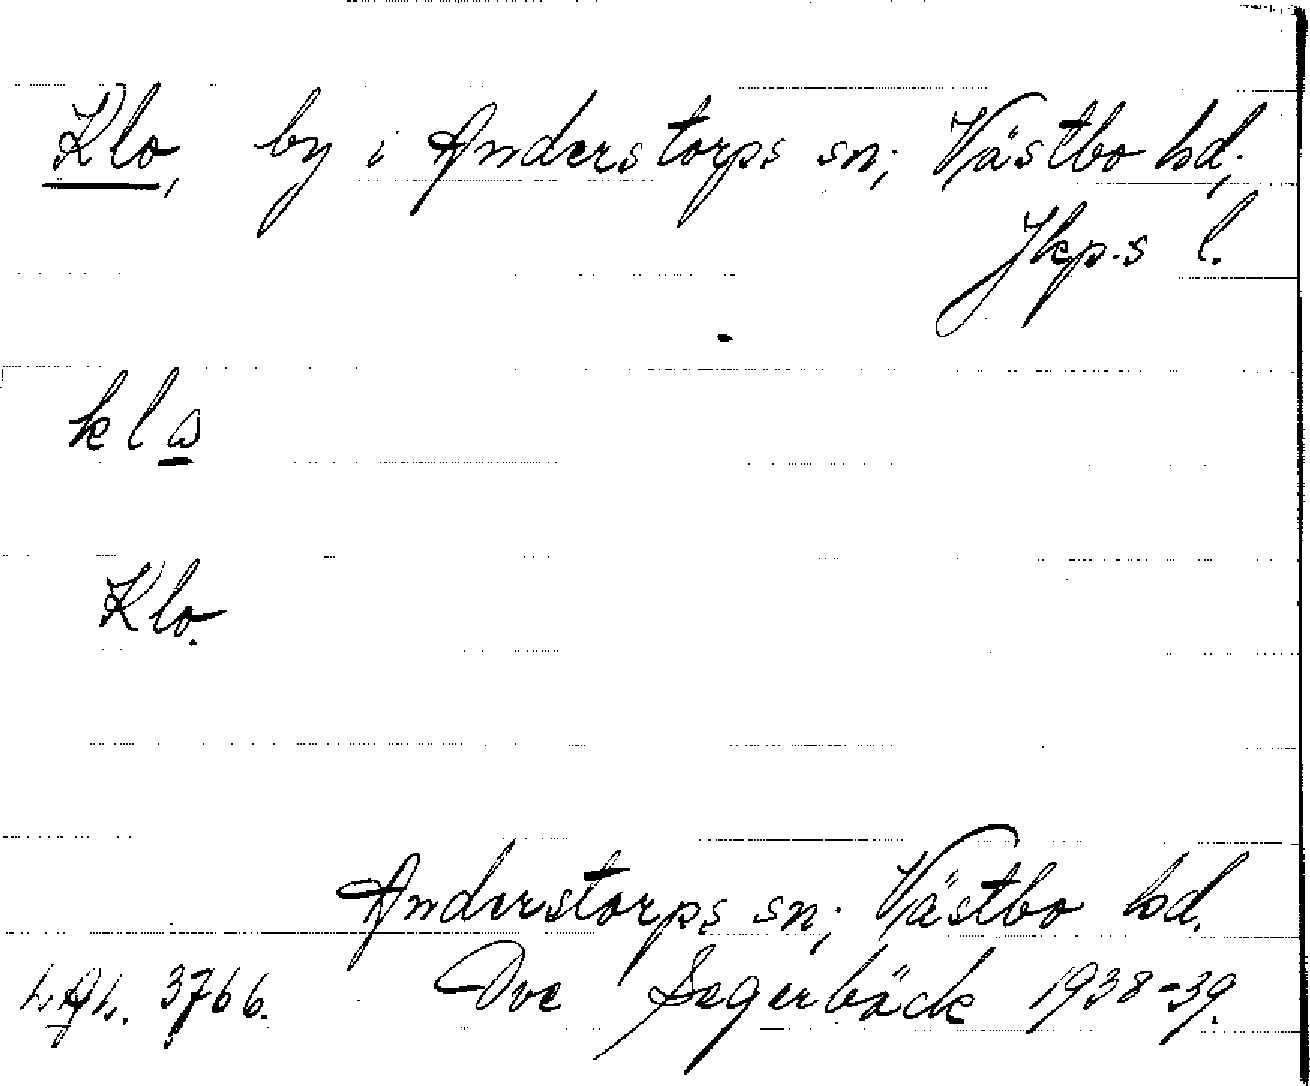 Klo, by i Anderstorps sn; Västbo hd;
Jkp.s l.
kl
Klo.
Anderstorps sn; Västbo hd.
3766. Ove Segerbäck 1938-39.